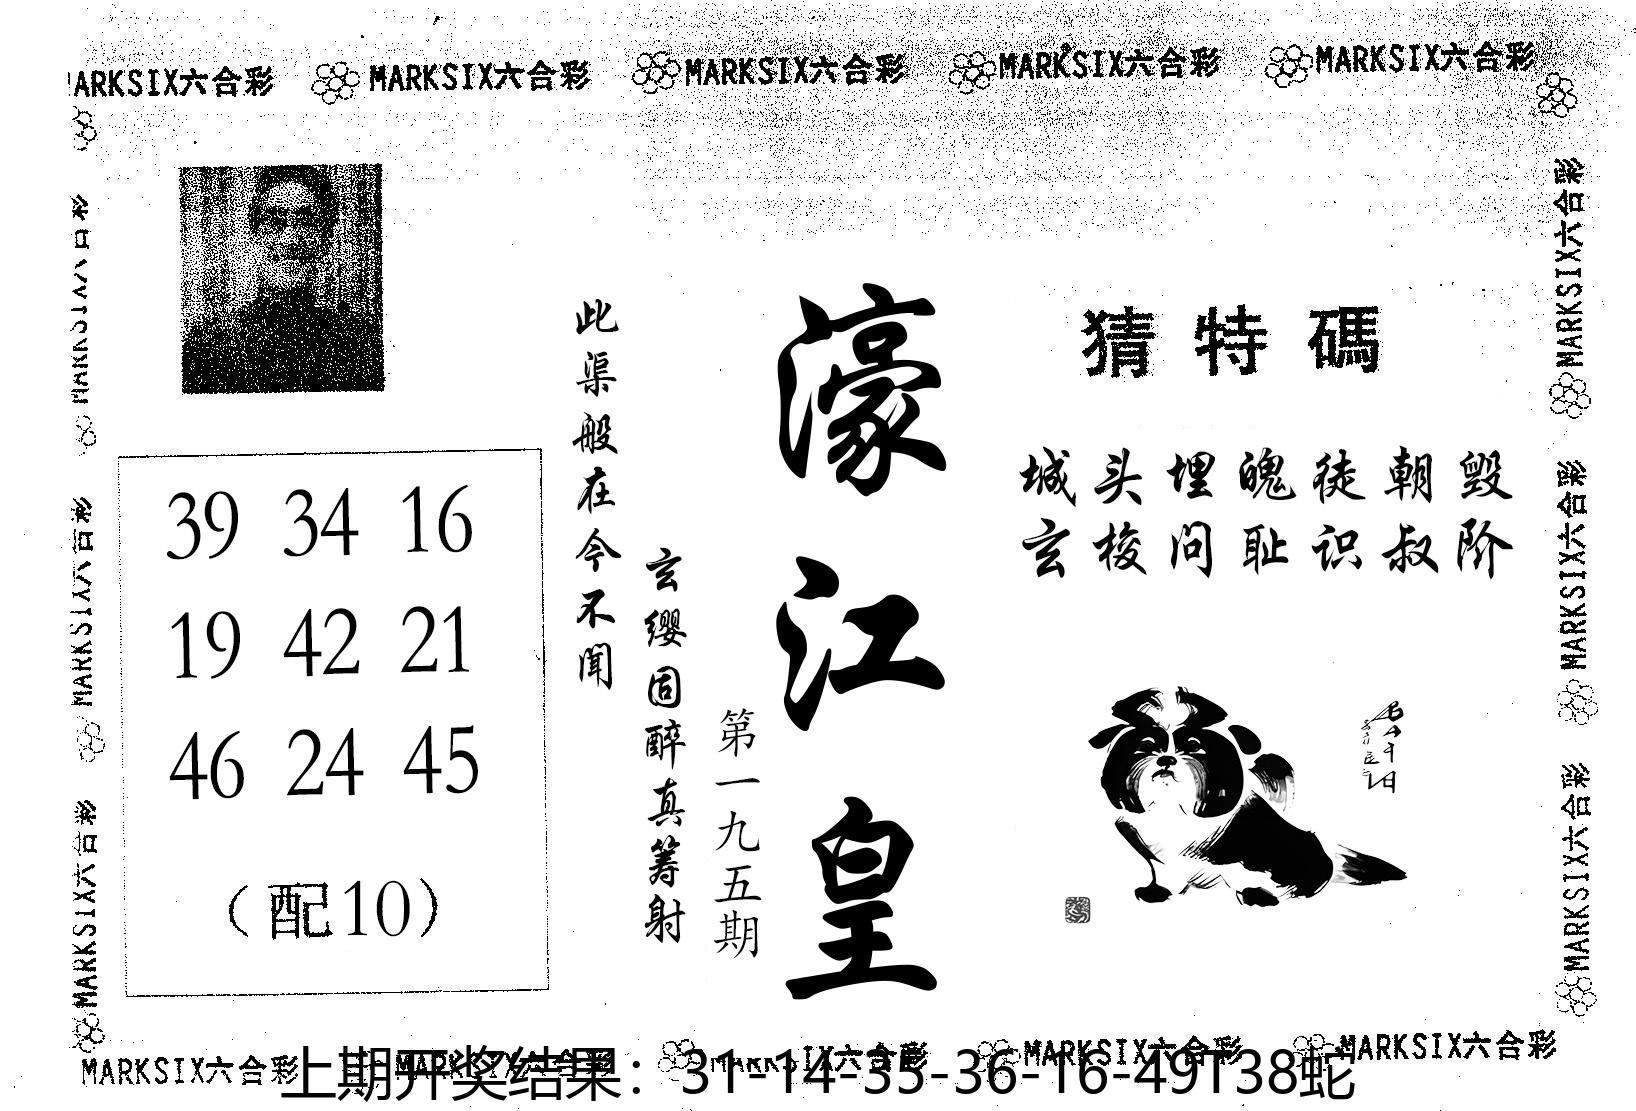 MARKSIX六合彩 MARKSIX六合彩 MARKSIX六合彩 MARKSIX六合彩 MARKSIX六合彩
猜特碼
城头埋魄徒朝毁
玄梭问耻识叔阶
濠江皇
第一九五期
玄缨固醉真筹射
此渠般在今不闻
39 34 16
19 42 21
46 24 45
（配10）
MARKSIX六合彩
MARKSIX六合彩
MARKSIX六合彩
MARKSIX六合彩
MARKSIX六合彩
MARKSIX六合彩
MARKSIX六合彩 MARKSIX六合彩 MARKSIX六合彩 MARKSIX六合彩 MARKSIX六合彩
上期开奖结果：31-14-35-36-16-49T38蛇